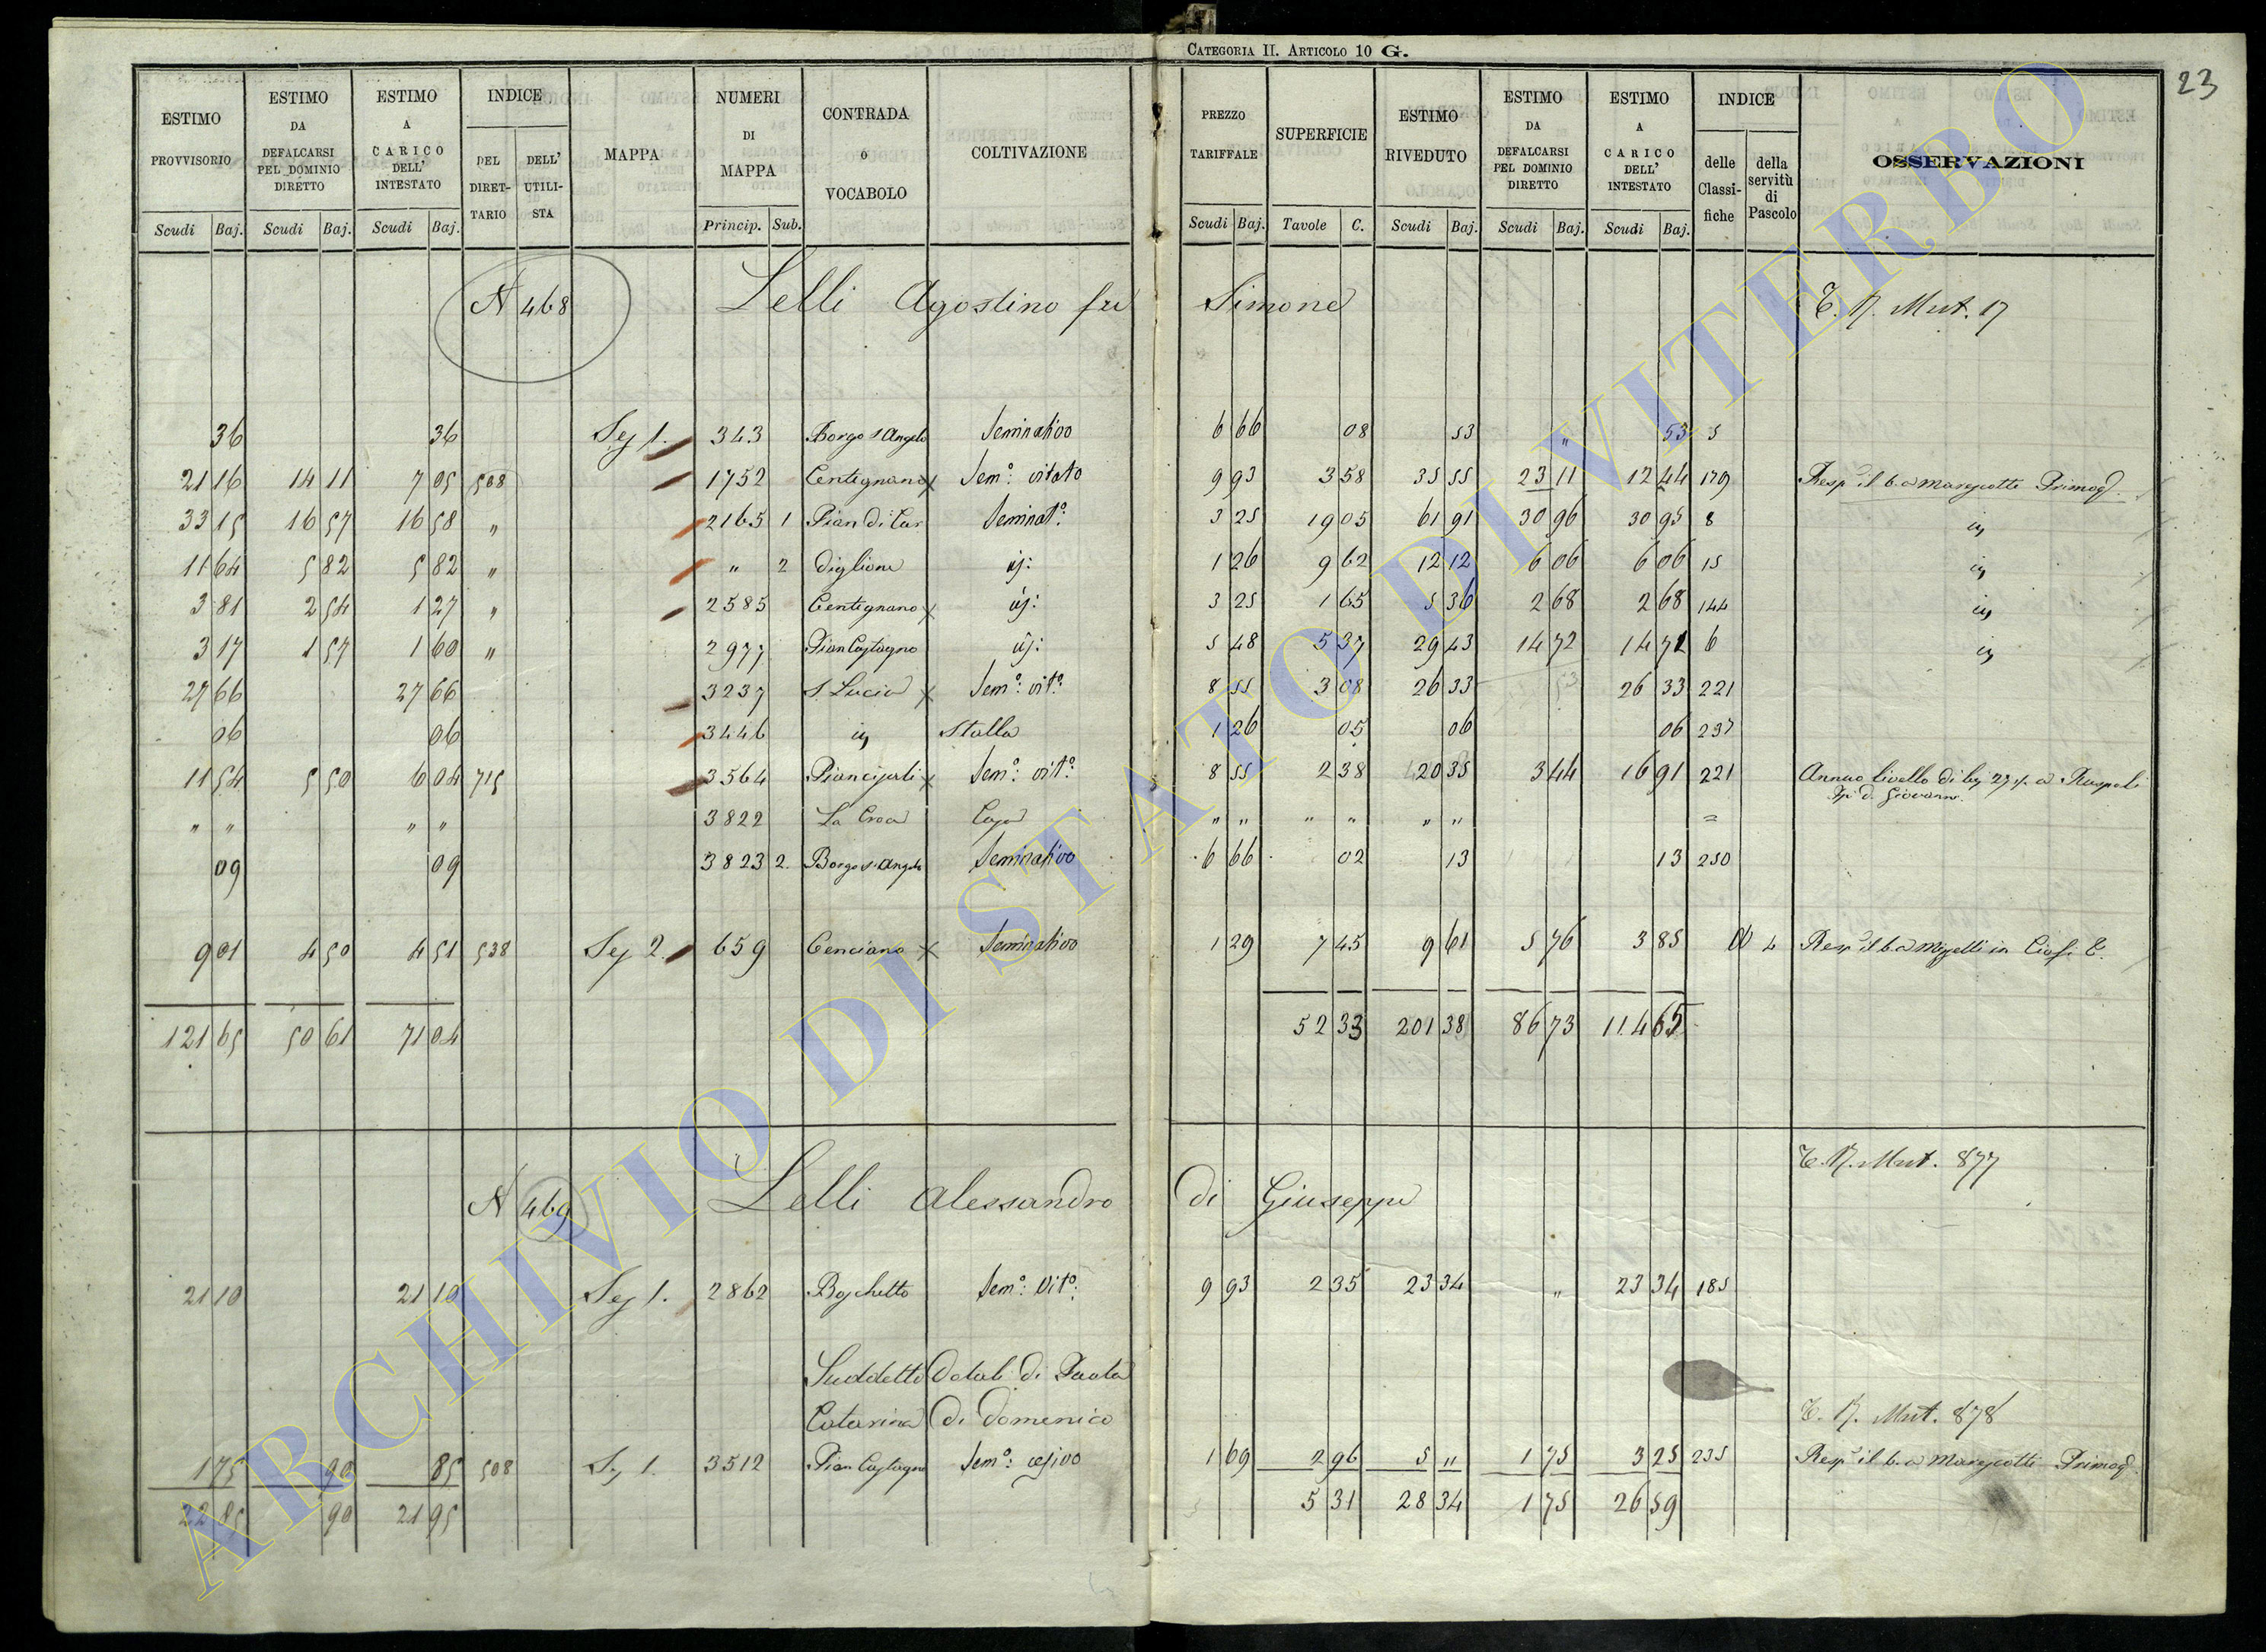 CATEGORIA II. ARTICOLO 10 G.
23
ESTIMO PROVVISORIO Scudi Baj.
ESTIMO DA DEFALCARSI PEL DOMINIO DIRETTO Scudi Baj.
ESTIMO A CARICO DELL' INTESTATO Scudi Baj.
INDICE DEL DIRETTARIO DELL' UTILISTA
MAPPA
NUMERI DI MAPPA Princip. Sub.
CONTRADA o VOCABOLO
COLTIVAZIONE
PREZZO TARIFFALE Scudi Baj.
SUPERFICIE Tavole C.
ESTIMO RIVEDUTO Scudi Baj.
ESTIMO DA DEFALCARSI PEL DOMINIO DIRETTO Scudi Baj.
ESTIMO A CARICO DELL' INTESTATO Scudi Baj.
INDICE delle Classifiche della servitù di Pascolo
OSSERVAZIONI
N 468 Lelli Agostino fu Simone Mut. 17
36 36 Sez 1. 343 Borgo S Angelo Seminativo 6 66 08 53 " 53 5
21 16 14 11 7 05 508 1752 Centignano Sem°: vitato 9 93 3 58 35 55 23 11 12 44 179 Resp il b. a Marescotti Primog.
33 15 16 57 16 58 " 2165 1 Pian di Car Seminat°: 3 25 19 05 61 91 30 96 30 95 8
11 64 5 82 5 82 " " 2 diglione 1 26 9 62 12 12 6 06 6 06 15
3 81 2 54 1 27 " 2585 Centignano 3 25 1 65 5 36 2 68 2 68 144
3 17 1 57 1 60 " 2977 Pian Castagno 5 48 5 37 29 43 14 72 14 71 6
27 66 27 66 3237 S. Lucia Sem°: vit°: 8 55 3 08 26 33 26 33 221
06 06 3446 Stalla 1 26 05 06 06 237
11 54 5 50 6 04 715 3564 Sem°: vit°: 8 55 2 38 20 35 3 44 16 91 221 Annuo livello di a Ruspoli
Giovanni
" " " " 3822 La Croce Casa " " " " " " =
09 09 3823 2. Borgo S. Angelo Seminativo 6 66 02 13 13 250
9 01 4 50 4 51 538 Sez 2. 659 Cenciano Seminativo 1 29 7 45 9 61 5 76 3 85 4 Resp il b. a in
121 65 50 61 71 04 52 33 201 38 86 73 114 65
Mut. 877
N 469 Lelli Alessandro di Giuseppe
21 10 21 10 Sez 1. 2862 Boschetto Sem°: Vit°: 9 93 2 35 23 34 " 23 34 185
Suddetto Dotali di Paola
Catarina di Domenico Mut. 878
1 75 90 85 508 Sez 1. 3512 Pian Castagno Sem°: 1 69 2 96 5 " 1 75 3 25 235 Resp il b. a Marescotti Primog.
22 85 90 21 95 5 31 28 34 1 75 26 59
ARCHIVIO DI STATO DI VITERBO